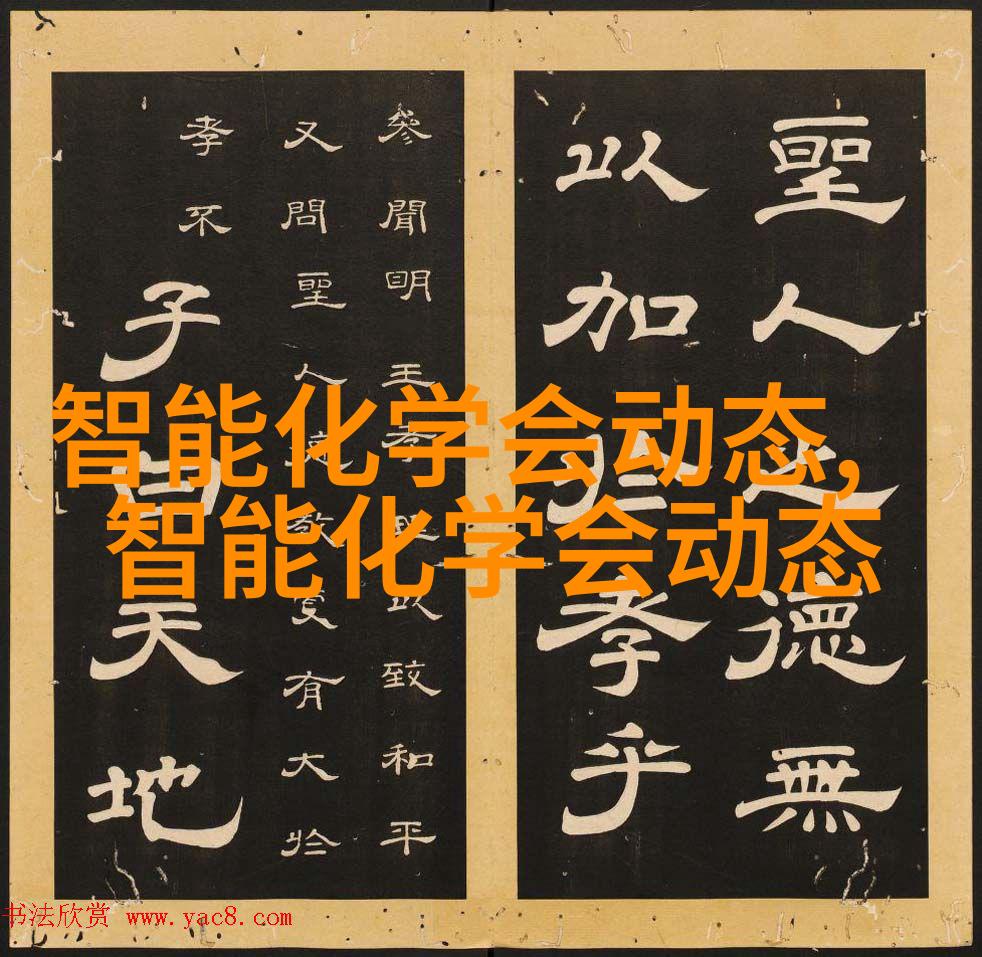 聖人之德無
以加於孝乎
參聞明王孝理以致和平
又問聖人德教更有大於
孝不
子曰天地
智能化学会动态,
智能化学会动态
书法欣赏 www.yac8.com